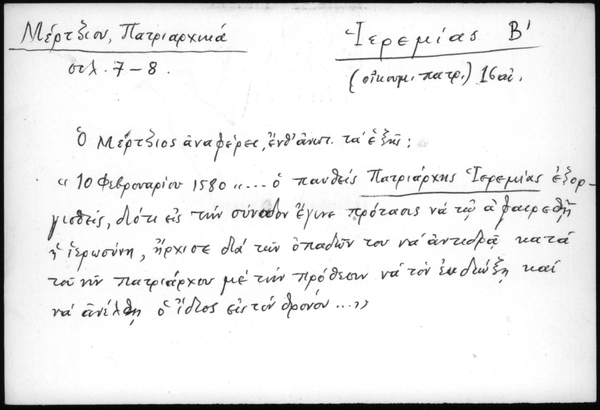 Μέρτζιου, Πατριαρχικά
σελ. 7-8.
Ἱερεμίας Β'
(οἰκουμ. πατρ.) 16 αἰ.
Ὁ Μέρτζιος ἀναφέρει, ἔνθ' ἀνωτ. τὰ ἑξῆς:
"10 Φεβρουαρίου 1580 "... ὁ παυθείς Πατριάρχης Ἱερεμίας ἐξορ-
γισθείς, διότι εἰς τήν σύνοδον ἔγινε πρότασις νά τῷ ἀφαιρεθῇ
ἡ ἱερωσύνη, ἤρχισε διά τῶν ὀπαδῶν του νά ἀντιδρᾷ κατά
τοῦ νῦν πατριάρχου μέ τήν πρόθεσιν νά τόν ἐκδιώξῃ καί
νά ἀνέλθῃ ὁ ἴδιος εἰς τόν θρόνον ...»